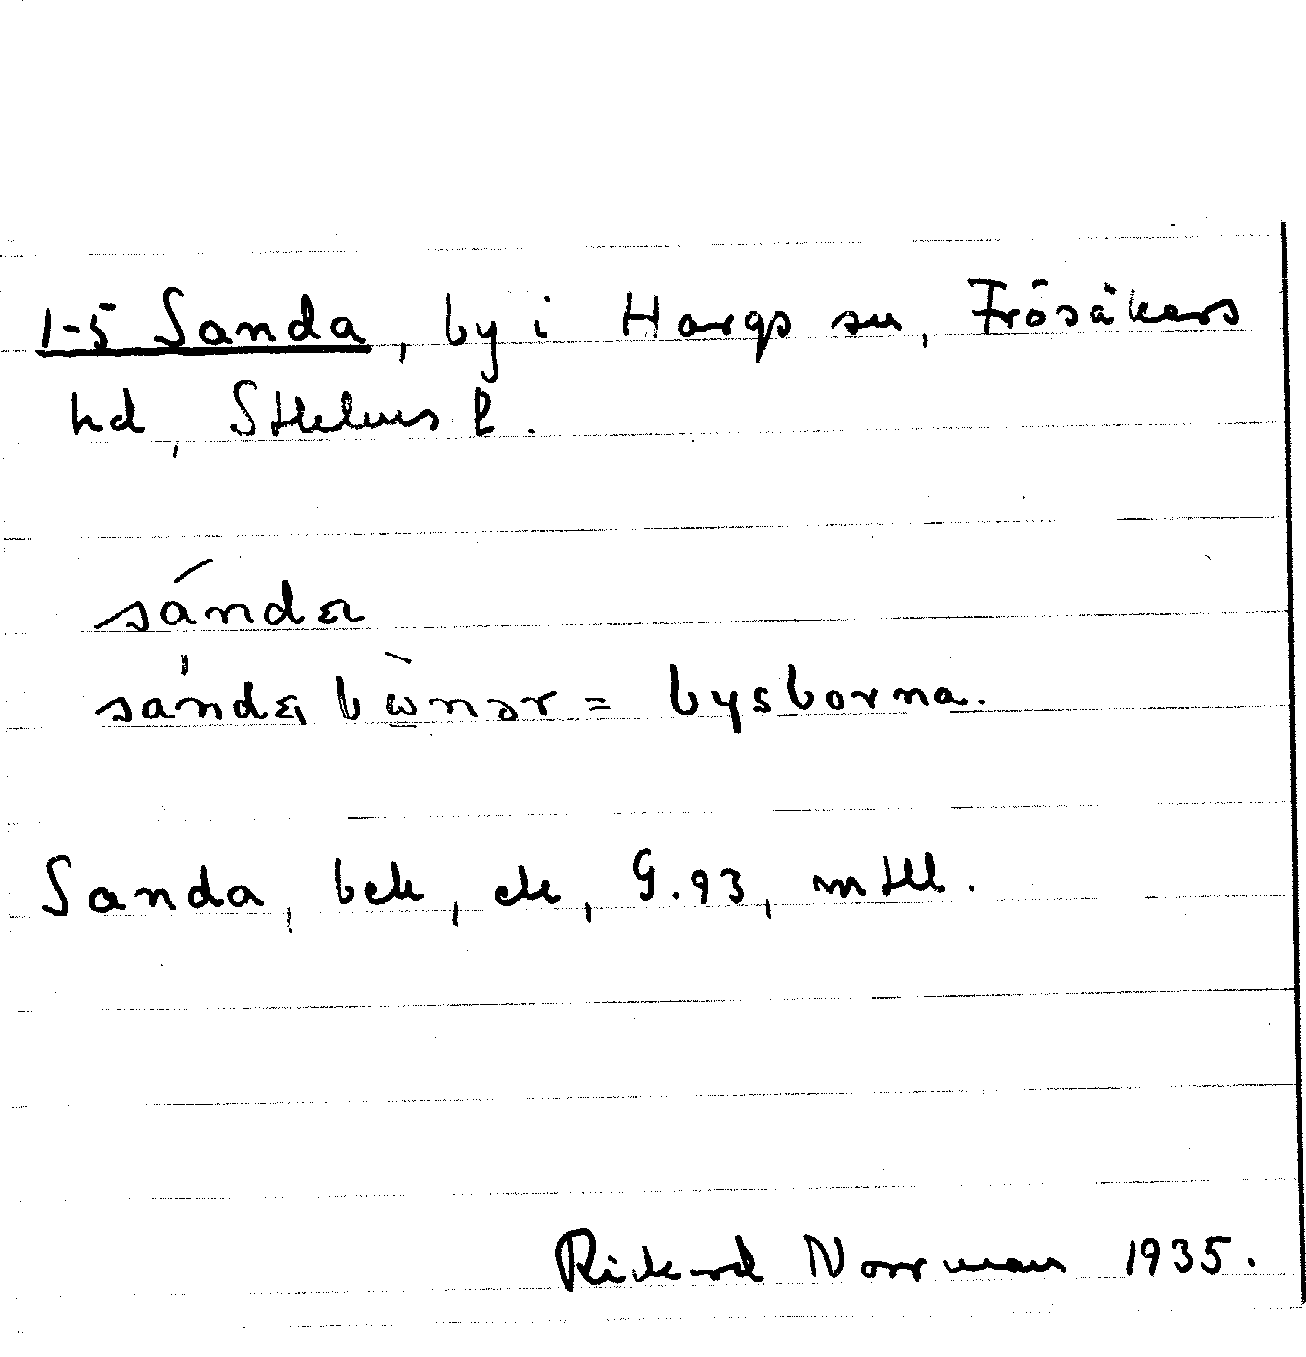 1-5 Sanda, by i Hargs sn, Frösåkers
hd, Sthlms l.
sánda
sándabònər = bysborna.
Sanda, bek, ek, G.93, mtll.
Rickard Norrman 1935.